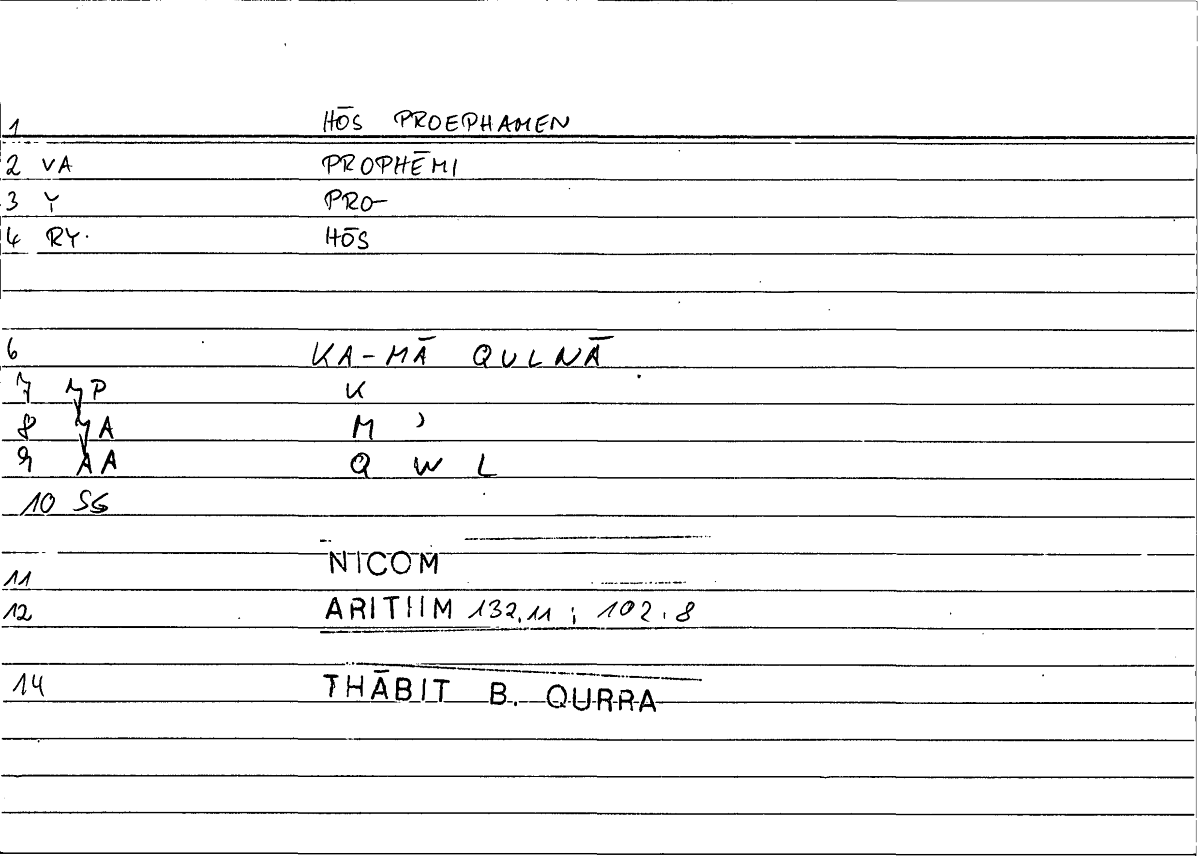 1 HŌS PROEPHAMEN
2 VA PROPHĒMI
3 Y PRO-
4 RY. HŌS
6 KA-MĀ QULNĀ
7 K
8 M ʾ
9 AA Q W L
10 SG
11 NICOM
12 ARITHM 132,11 ; 102,8
14 THĀBIT B. QURRA